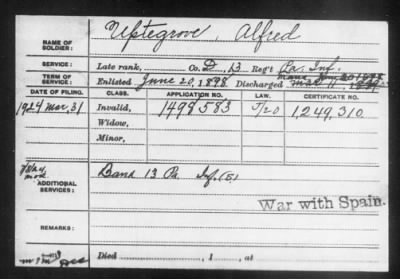 NAME OF SOLDIER: Upstegrove, Alfred
SERVICE: Late rank, Co. D, 13 Reg't Pa. Inf.
TERM OF SERVICE: Enlisted June 20, 1898 Discharged Mar 11, 1899
DATE OF FILING. CLASS. APPLICATION NO. LAW. CERTIFICATE NO.
1924 Mar. 31 Invalid, 1498583 1,249,310
Widow,
Minor,
ADDITIONAL SERVICES: Band 13 Pa Inf. (S)
War with Spain.
REMARKS:
Died , 1 , at